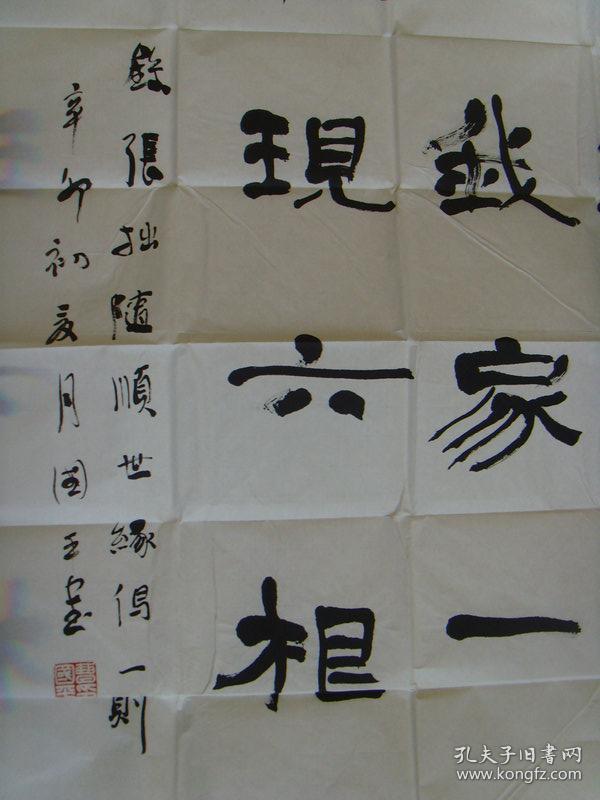 我家一
現六根
錄張拙隨順世緣偈一則
辛卯初夏月國平書
孔夫子旧書网
www.kongfz.com